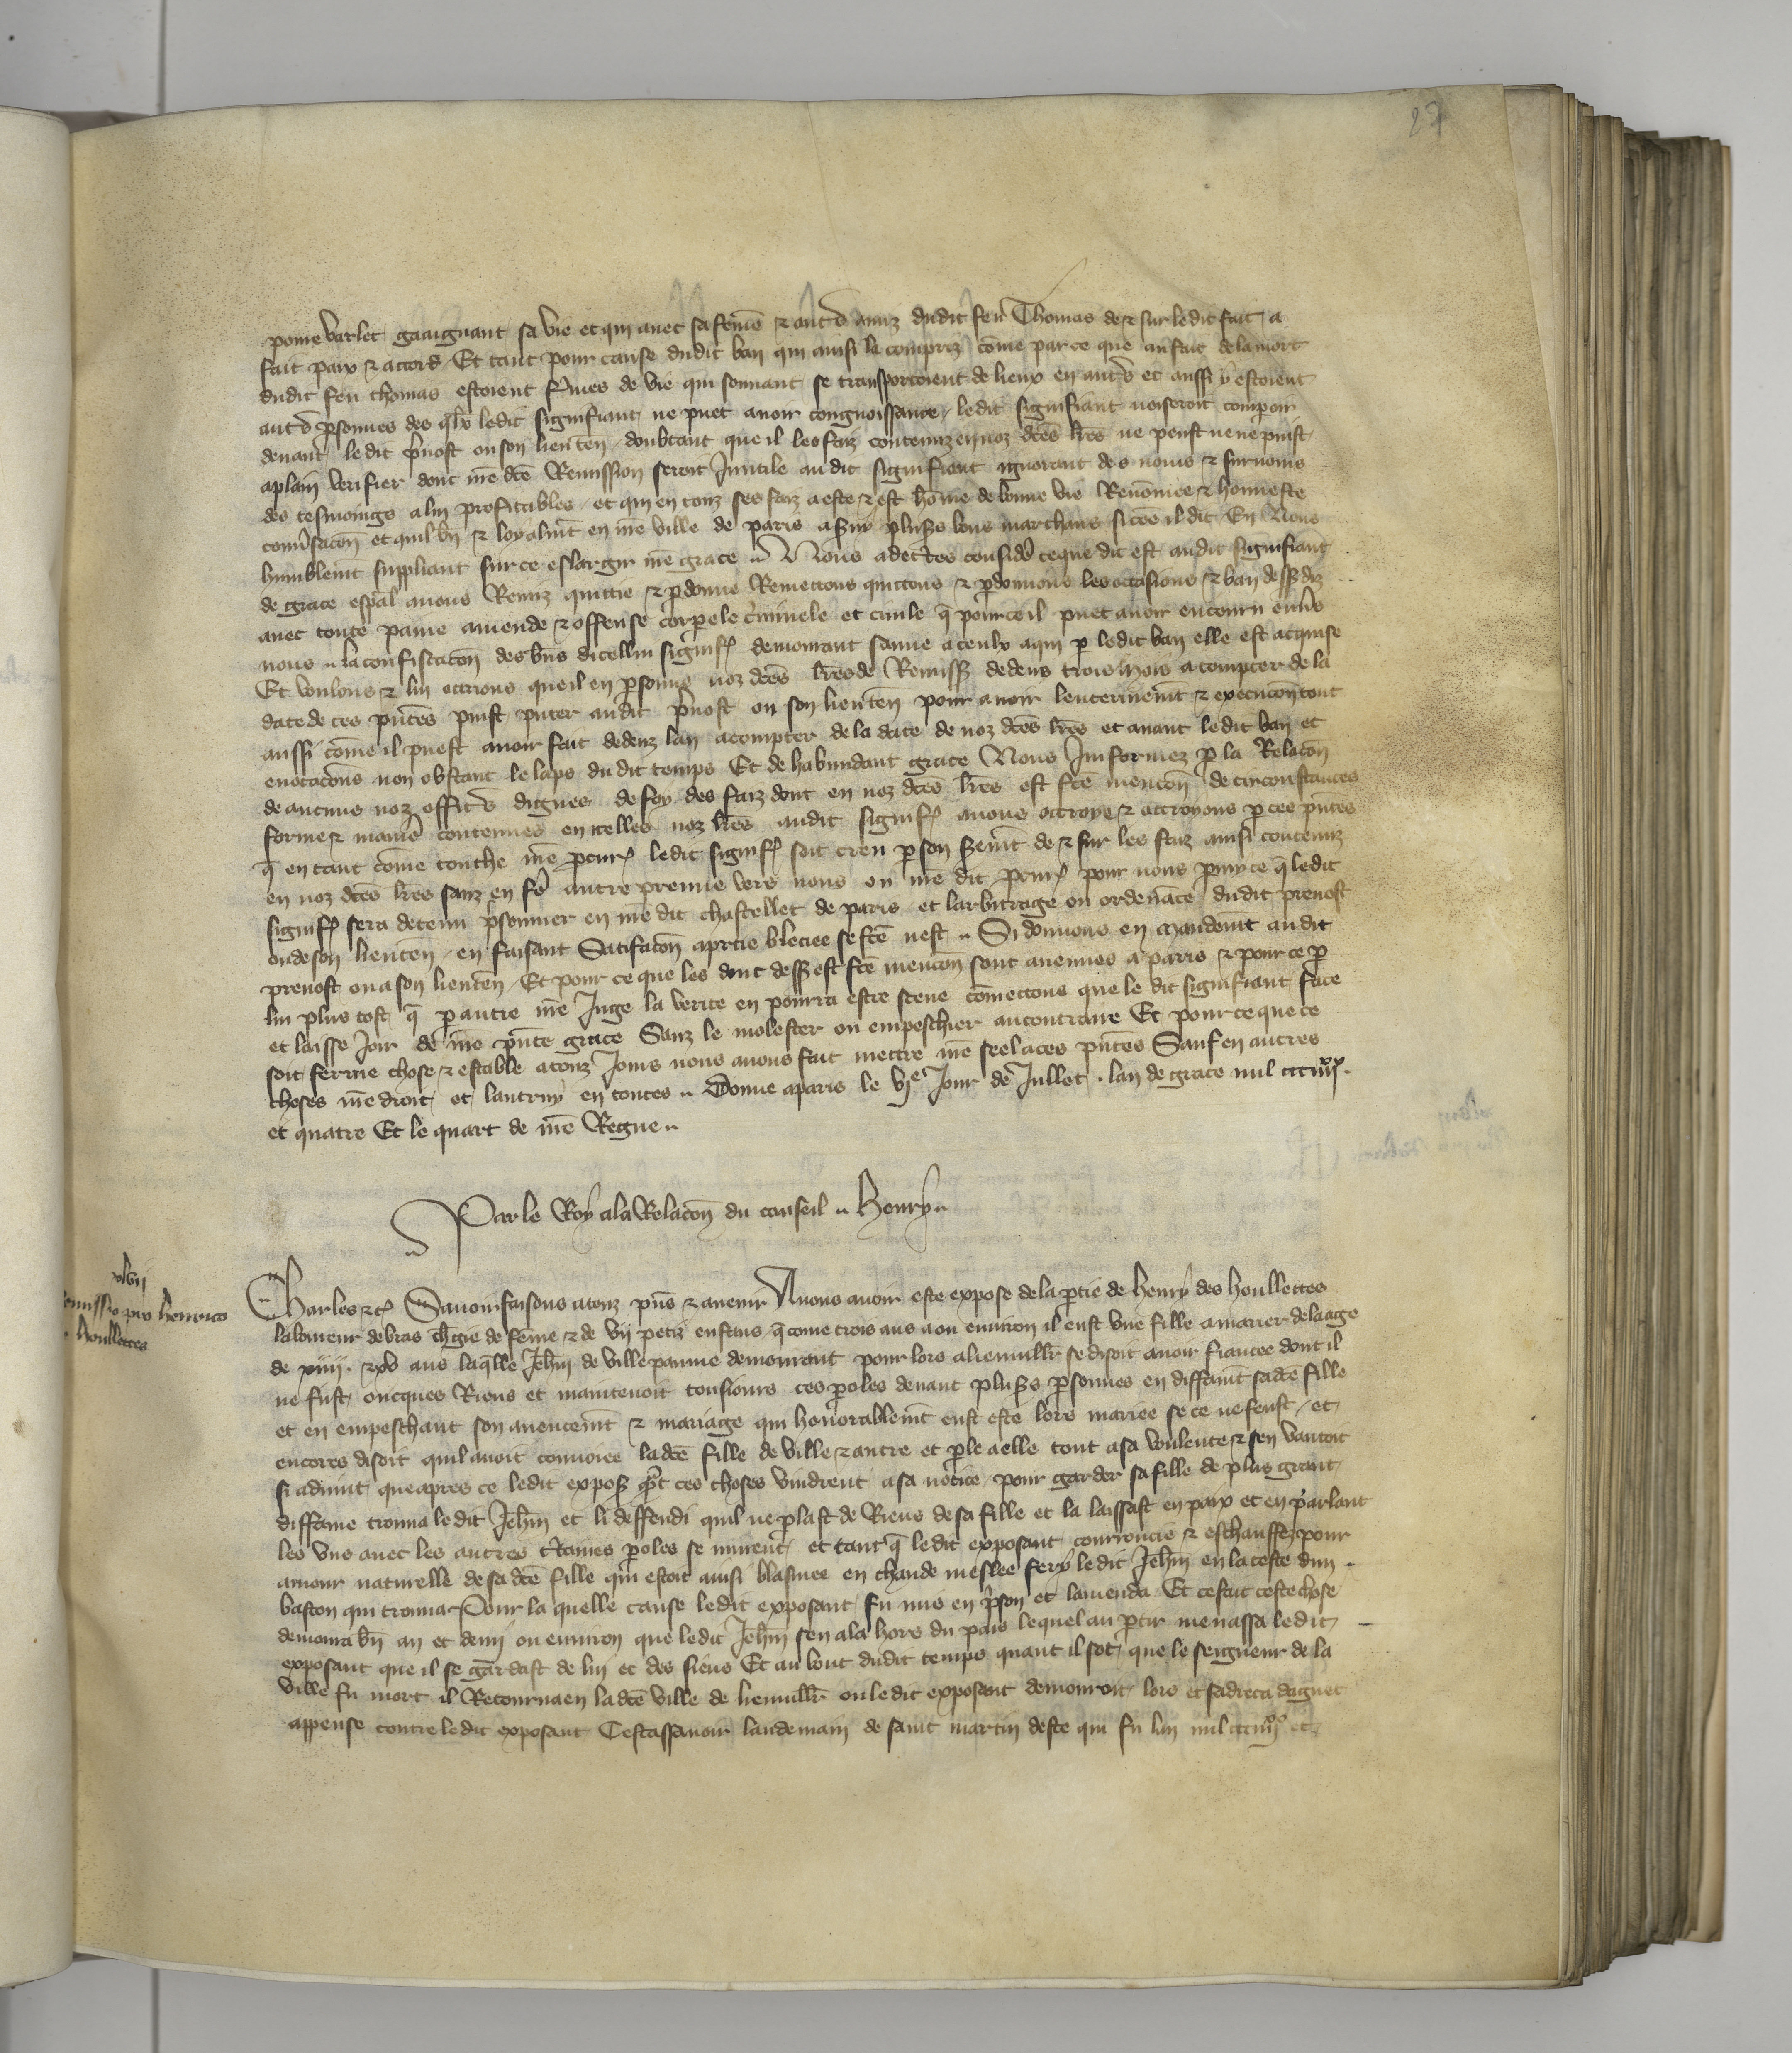 27
povre varlet gaaignant sa vie et qui avec sa feme & aut's amiz dudit feu Thomas de & sur le dit fait a
fait paix & accord Et tant pour cause dudit ban qui ainsi la compris come par ce que au fait de la mort
dudit feu thomas estoient femes de vie qui souvant se transportoient de lieux en aut's et aussi y estoient
aut's psonnes des qlx ledit signifiant ne puet avoir congnoissance ledit signifiant noiseroit comparoir
devant ledit pvost ou son lieuten doubtant que il les faiz contenuz en noz dces lres ne peust ne ne puist
aplain verifier dont nre dce Remission seroit Inutile audit signifiant ignorant des noms & surnoms
des tesmoings a lui profitables et qui en touz ses faiz a este & est home de bonne vie Renommee & honneste
convsacon et quil bn & loyalmt en nre ville de paris a svy plusrs bons marchans si coe il dit En Nous
humblemt suppliant sur ce eslargir nre grace Nous adectes consider ce que dit est audit signifiant
de grace espal avons Remiz quittie & pdonne Remettons quittons & pdonnons les occasions & ban dessdiz
avec toute paine amende & offense corpele criminele et civile q pour ce il puet avoir encouru envs
nous la confiscacon des bns dicellui signif demourant sauve a ceulx a qui p ledit ban elle est acquise
Et voulons & lui ottrions que il en psonne noz dces lres de Remiss dedens trois mois a compter de la
date de ces pntes puist pnter audit pvost ou son lieuten pour avoir lenterinemt & execucon tout
aussi come il peust avoir fait dedenz lan acompter de la date de noz dces lres et avant ledit ban et
evocacons non obstant le laps du dit temps Et de habundant grace Nous Imformez p la Relacon
de aucuns noz officrs dignes de foy des faiz dont en noz dces lres est fce mencon de circonstances
forme & maniere contenues en icelles noz lres audit signif avons ottroye & ottroyons p ces pntes
q en tant come touche nre pcur ledit signif soit creu p son seremt de & sur les faiz ainsi contenuz
en noz dces lres sanz en fe autre preuve vers nous ou nre dit pcur pour nous pmy ce q ledit
signif sera detenu psonnier en nre dit chastellet de paris et larbitrage ou ordenance dudit prevost
ou de son lieuten en faisant Satifacon a partie bleciee se fce nest Si donnons en mandemt audit
prevost ou a son lieuten Et pour ce que les dont dess est fce mencon sont avenues a paris & pour ce p
lui plus tost q p autre nre Juge la verite en pourra estre sceue comettons que le dit signifiant face
et laisse Joir de nre pnte grace Sanz le molester ou empeschier au contraire Et pour ce que ce
soit ferme chose & estable a touz Jours nous avons fait mettre nre seel a ces pntes Sauf en autres
choses nre droit et lautruy en toutes Donne a paris le vje Jour de Jullet . lan de grace mil ccciiijxx
et quatre Et le quart de nre Regne
Par le Roy a la Relacon du conseil Henry
xlvij
Remissio pro henrico
houllettes
Charles &c Savoir faisons a touz pns & avenir Nous avoir este expose de la ptie de Henry des houllettes
laboureur de bras chgie de feme & de vij petiz enfans q come trois ans a ou environ il eust une fille a marier de laage
de xiiij. & xv ans laqlle Jehn de ville paume demourant pour lors a lieuvillr se disoit avoir fiancee dont il
ne fust oncques Riens et maintenoit tousiours ces poles devant plusrs psonnes en diffamt sadce fille
et en empeschant son avancemt & mariage qui honnorablemt eust este lors mariee se ce ne feust et
encores disoit quil avoit convoiee ladce fille de ville a autre et ple a elle tout a sa voulente & sen vantoit
si advint que apres ce ledit expos qt ces choses vindrent a sa notice pour garder sa fille de plus grant
diffame trouva ledit Jehn et li deffendi quil ne plast de Riens de sa fille et la laissast en paix et en parlant
les uns avec les autres ctaines poles se murent et tant q ledit exposant courroucie & eschauffez pour
amour naturelle de sa dce fille qui estoit ainsi blasmee en chaude meslee fery ledit Jehn en la teste dun
baston qui trouva Pour la quelle cause ledit exposant fu mis en pson et lamenda Et ce fait ceste chose
demoura bn an et demj ou environ que ledit Jehn sen ala hors du pais lequel au ptir menassa ledit
exposant que il se gardast de lui et des siens Et au bout dudit temps quant il sot que le seigneur de la
ville fu mort il Retourna en ladce ville de lieuvillr ou ledit exposant demouroit lors et sadreca daguet
appense contre ledit exposant Cestassavoir landemain de saint martin deste qui fu lan mil ccciiijxx et